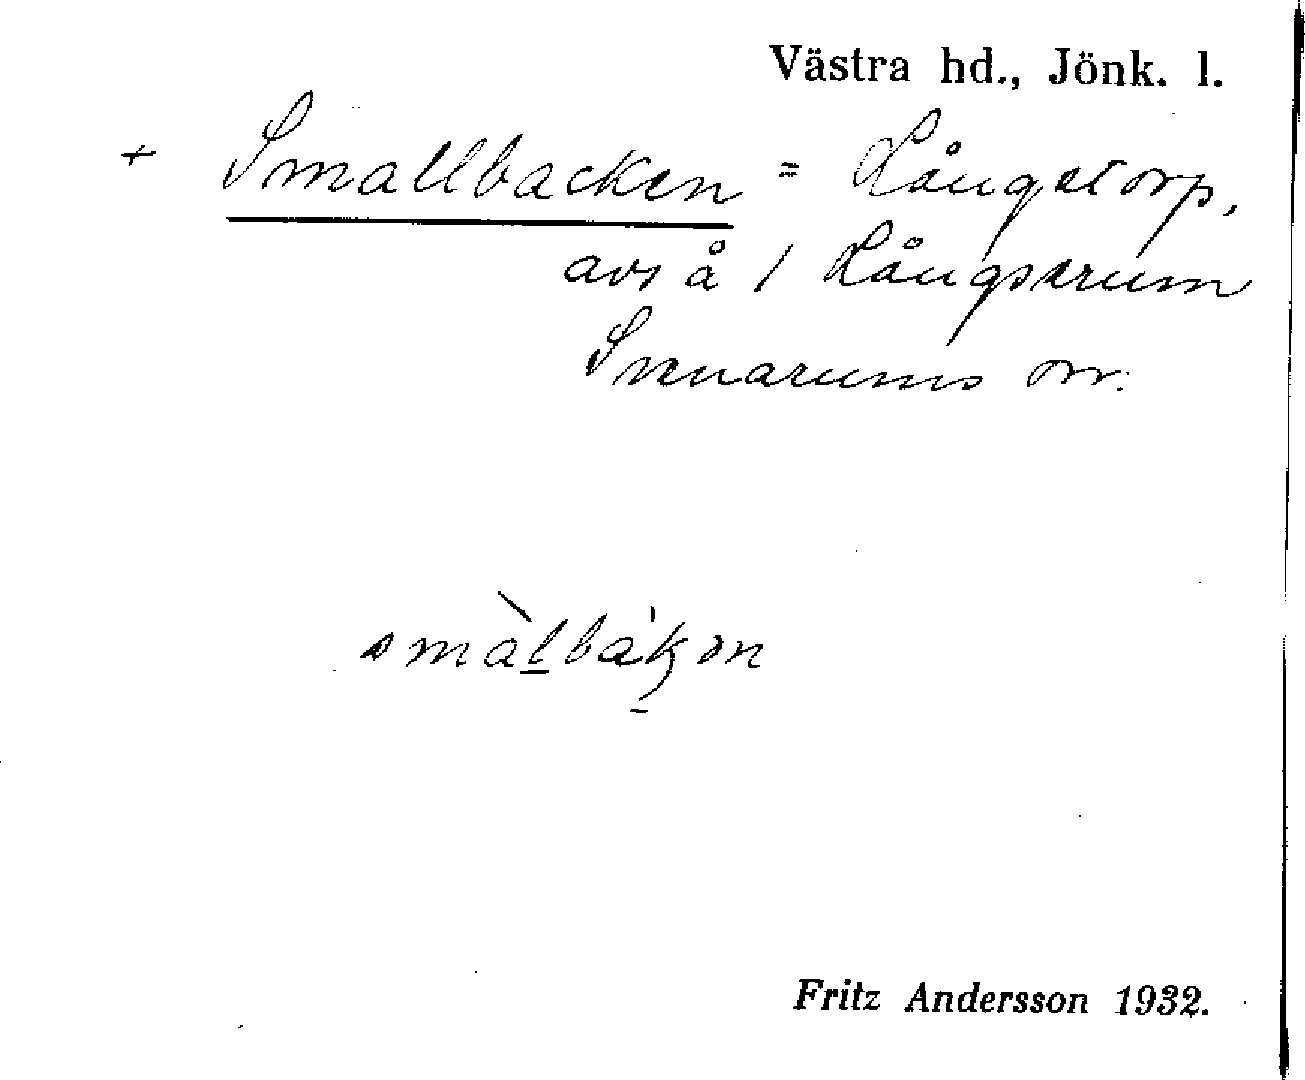 Västra hd., Jönk. l.
+ Smallbacken = Långstorp,
avs å 1 Långserum
Svenarums sn.
smàl̲bàkən
Fritz Andersson 1932.